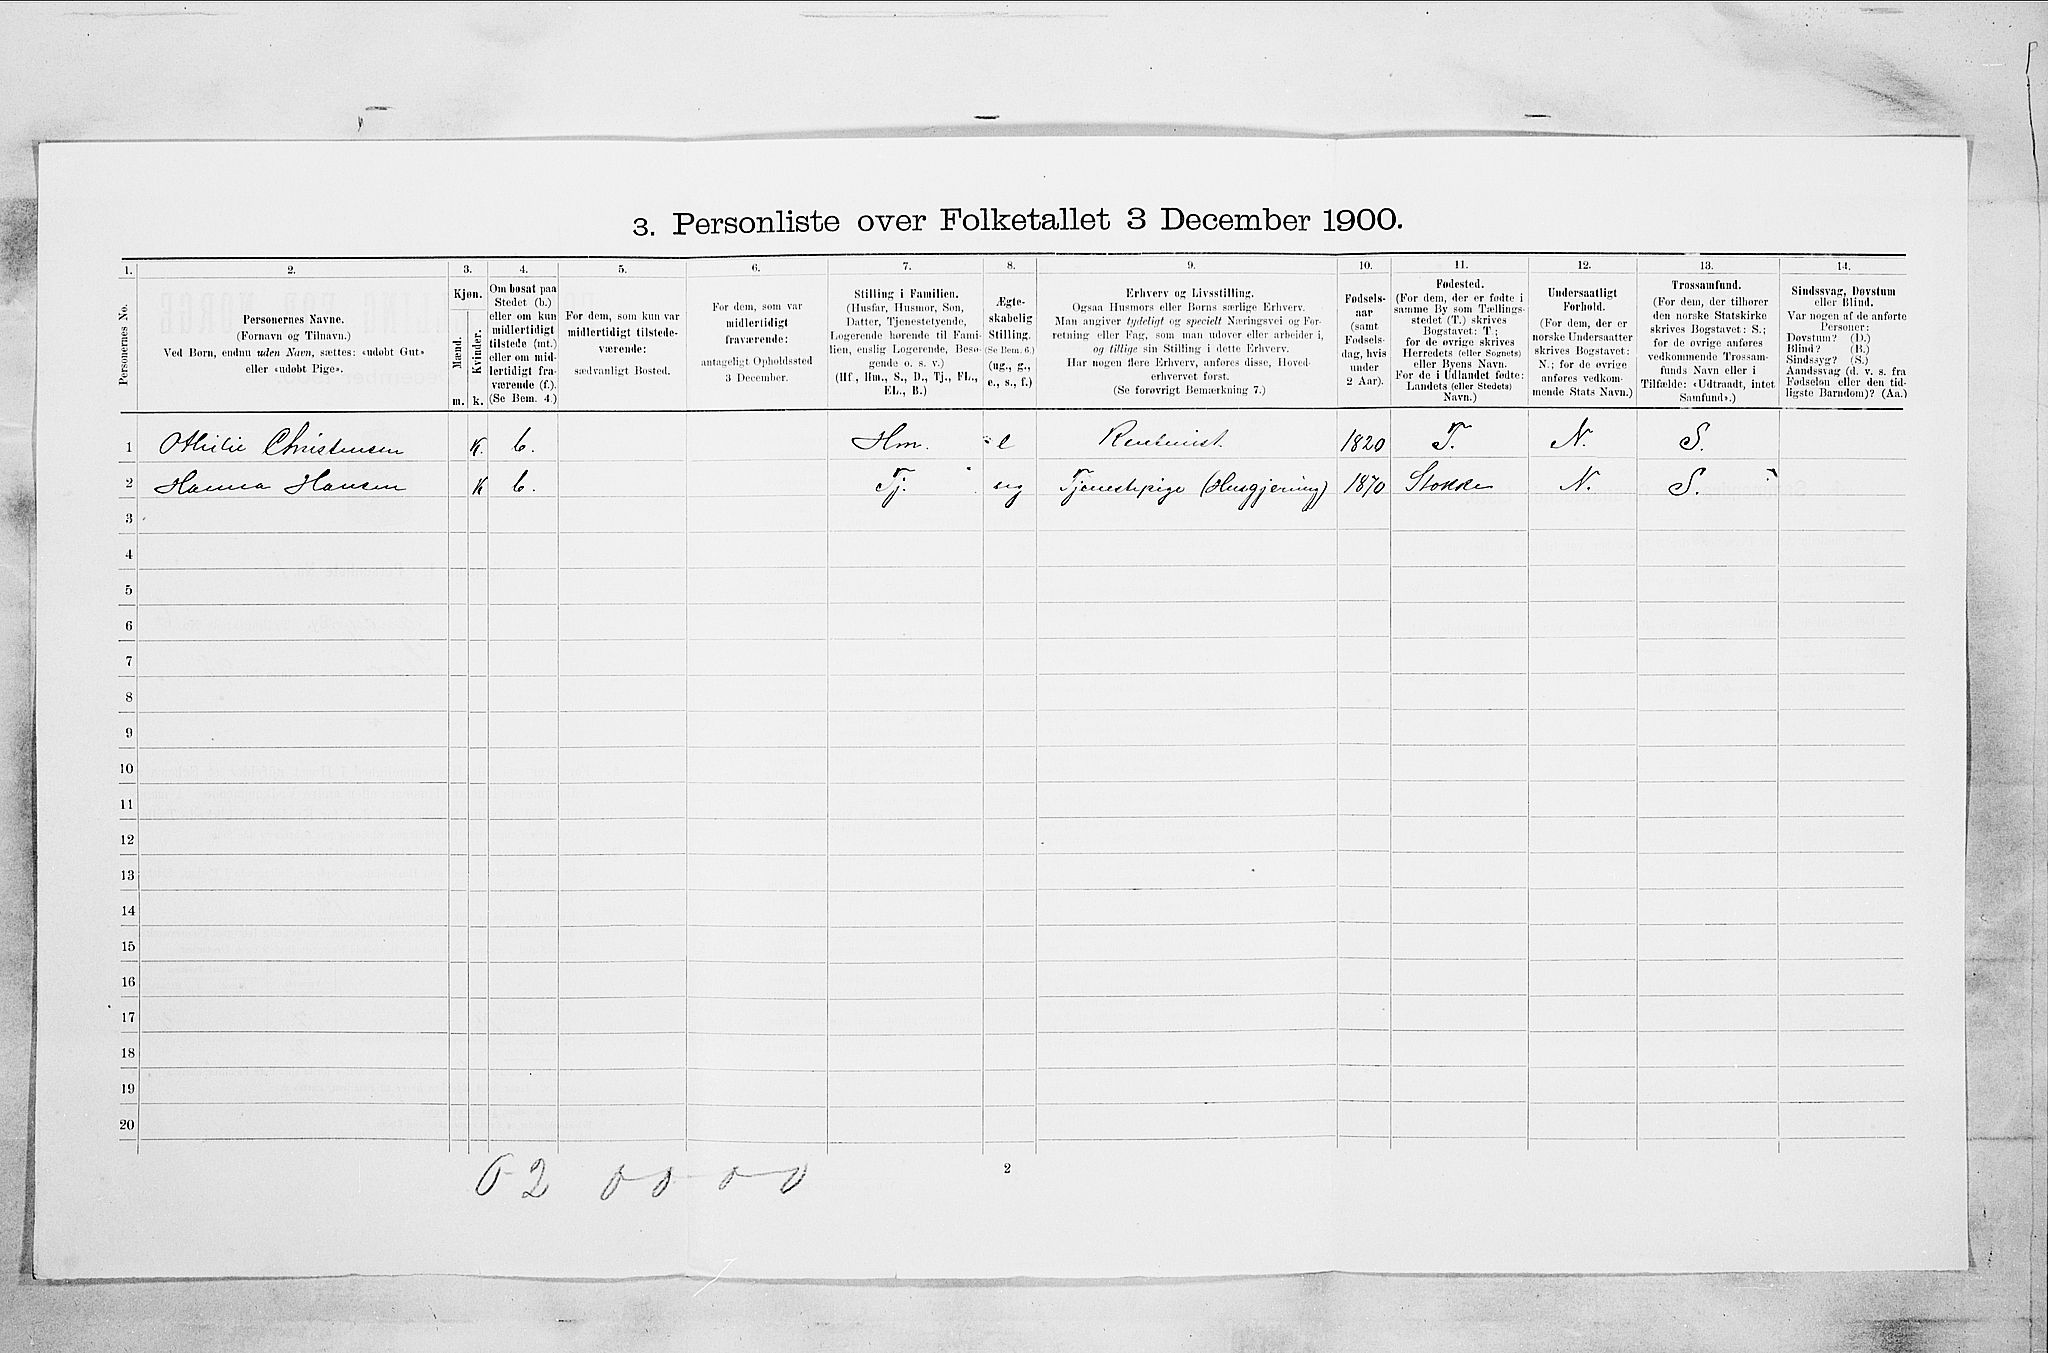 3. Personliste over Folketallet 3 December 1900.
1. 2. 3. 4. 5. 6. 7. 8. 9. 10. 11. 12. 13. 14.
Personernes No.
Personernes Navne.
(Fornavn og Tilnavn.)
Ved Børn, endnu uden Navn, sættes: «udøbt Gut»
eller «udøbt Pige».
Kjøn.
Mænd.
Kvinder.
m. k.
Om bosat paa
Stedet (b.)
eller om kun
midlertidigt
tilstede (mt.)
eller om mid-
lertidigt fra-
værende (f.).
(Se Bem. 4.)
For dem, som kun var
midlertidigt tilstede-
værende:
sædvanligt Bosted.
For dem, som var
midlertidigt
fraværende:
antageligt Opholdssted
3 December.
Stilling i Familien.
(Husfar, Husmor, Søn,
Datter, Tjenestetyende,
Logerende hørende til Fami-
lien, enslig Logerende, Besø-
gende o. s. v.)
(Hf., Hm., S., D., Tj., FL.,
EL., B.)
Ægte-
skabelig
Stilling.
(Se Bem. 6.)
(ug., g.,
e., s., f.)
Erhverv og Livsstilling.
Ogsaa Husmors eller Børns særlige Erhverv.
Man angiver tydeligt og specielt Næringsvei og For-
retning eller Fag, som man udøver eller arbeider i,
og tillige sin Stilling i dette Erhverv.
Har nogen flere Erhverv, anføres disse, Hoved-
erhvervet først.
(Se forøvrigt Bemærkning 7.)
Fødsels-
aar
(samt
Fødsels-
dag, hvis
under
2 Aar).
Fødested.
(For dem, der er fødte i
samme By som Tællings-
stedet (T.) skrives
Bogstavet: T;
for de øvrige skrives
Herredets (eller Sognets)
eller Byens Navn.
For de i Udlandet fødte:
Landets (eller Stedets)
Navn.)
Undersaatligt
Forhold.
(For dem, der er
norske Undersaatter
skrives Bogstavet:
N.; for de øvrige
anføres vedkom-
mende Stats Navn.)
Trossamfund.
(For dem, der tilhører
den norske Statskirke
skrives Bogstavet: S.;
for de øvrige anføres
vedkommende Trossam-
funds Navn eller i
Tilfælde: «Udtraadt, intet
Samfund».)
Sindssvag, Døvstum
eller Blind.
Var nogen af de anførte
Personer:
Døvstum? (D.)
Blind? (B.)
Sindssyg? (S.)
Aandssvag (d. v. s. fra
Fødselen eller den tid-
ligste Barndom)? (Aa.)
1 Othilie Christensen K. b. Hm. e Rentenist. 1820 T. N. S.
2 Hanna Hansen K b. Tj. ug Tjenestepige (Husgjerning) 1870 Stokke N. S.
3
4
5
6
7
8
9
10
11
12
13
14
15
16
17
18
19
20
0 2 0 0 0 0
2